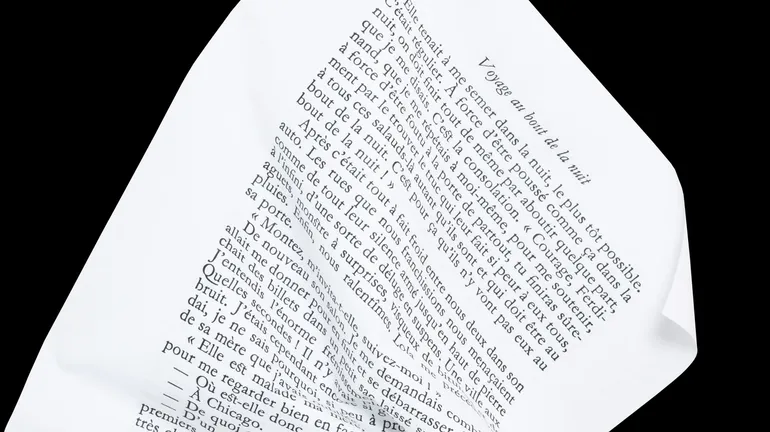 Voyage au bout de la nuit
Elle tenait à me semer dans la nuit, le plus tôt possible.
C'était régulier. À force d'être poussé comme ça dans la
nuit, on doit finir tout de même par aboutir quelque part,
que je me disais. C'est la consolation. « Courage, Ferdi-
nand, que je me répétais à moi-même, pour me soutenir,
à force d'être foutu à la porte de partout, tu finiras sûre-
ment par le trouver le truc qui leur fait si peur à eux tous,
à tous ces salauds-là autant qu'ils sont et qui doit être au
bout de la nuit. C'est pour ça qu'ils n'y vont pas eux au
bout de la nuit ! »
Après c'était tout à fait froid entre nous deux dans son
auto. Les rues que nous franchissions nous menaçaient
comme de tout leur silence armé jusqu'en haut de pierre
à l'infini, d'une sorte de déluge en suspens. Une ville aux
aguets, monstre à surprises, visqueux de
pluies. Enfin, nous ralentîmes. Lola me
sa porte.
« Montez, m'invita-t-elle, suivez-moi ! »
De nouveau son salon. Je me demandais combien
allait me donner pour en finir et se débarrasser
chait des billets dans
J'entendis l'énorme
Quelles secondes ! Il n'y
bruit. J'étais cependant
dai, je ne sais pourquoi
de sa mère que j'avais
« Elle est malade ma
pour me regarder bien en
— Où est-elle donc
— À Chicago.
— De quoi
— D'un
premiers
très